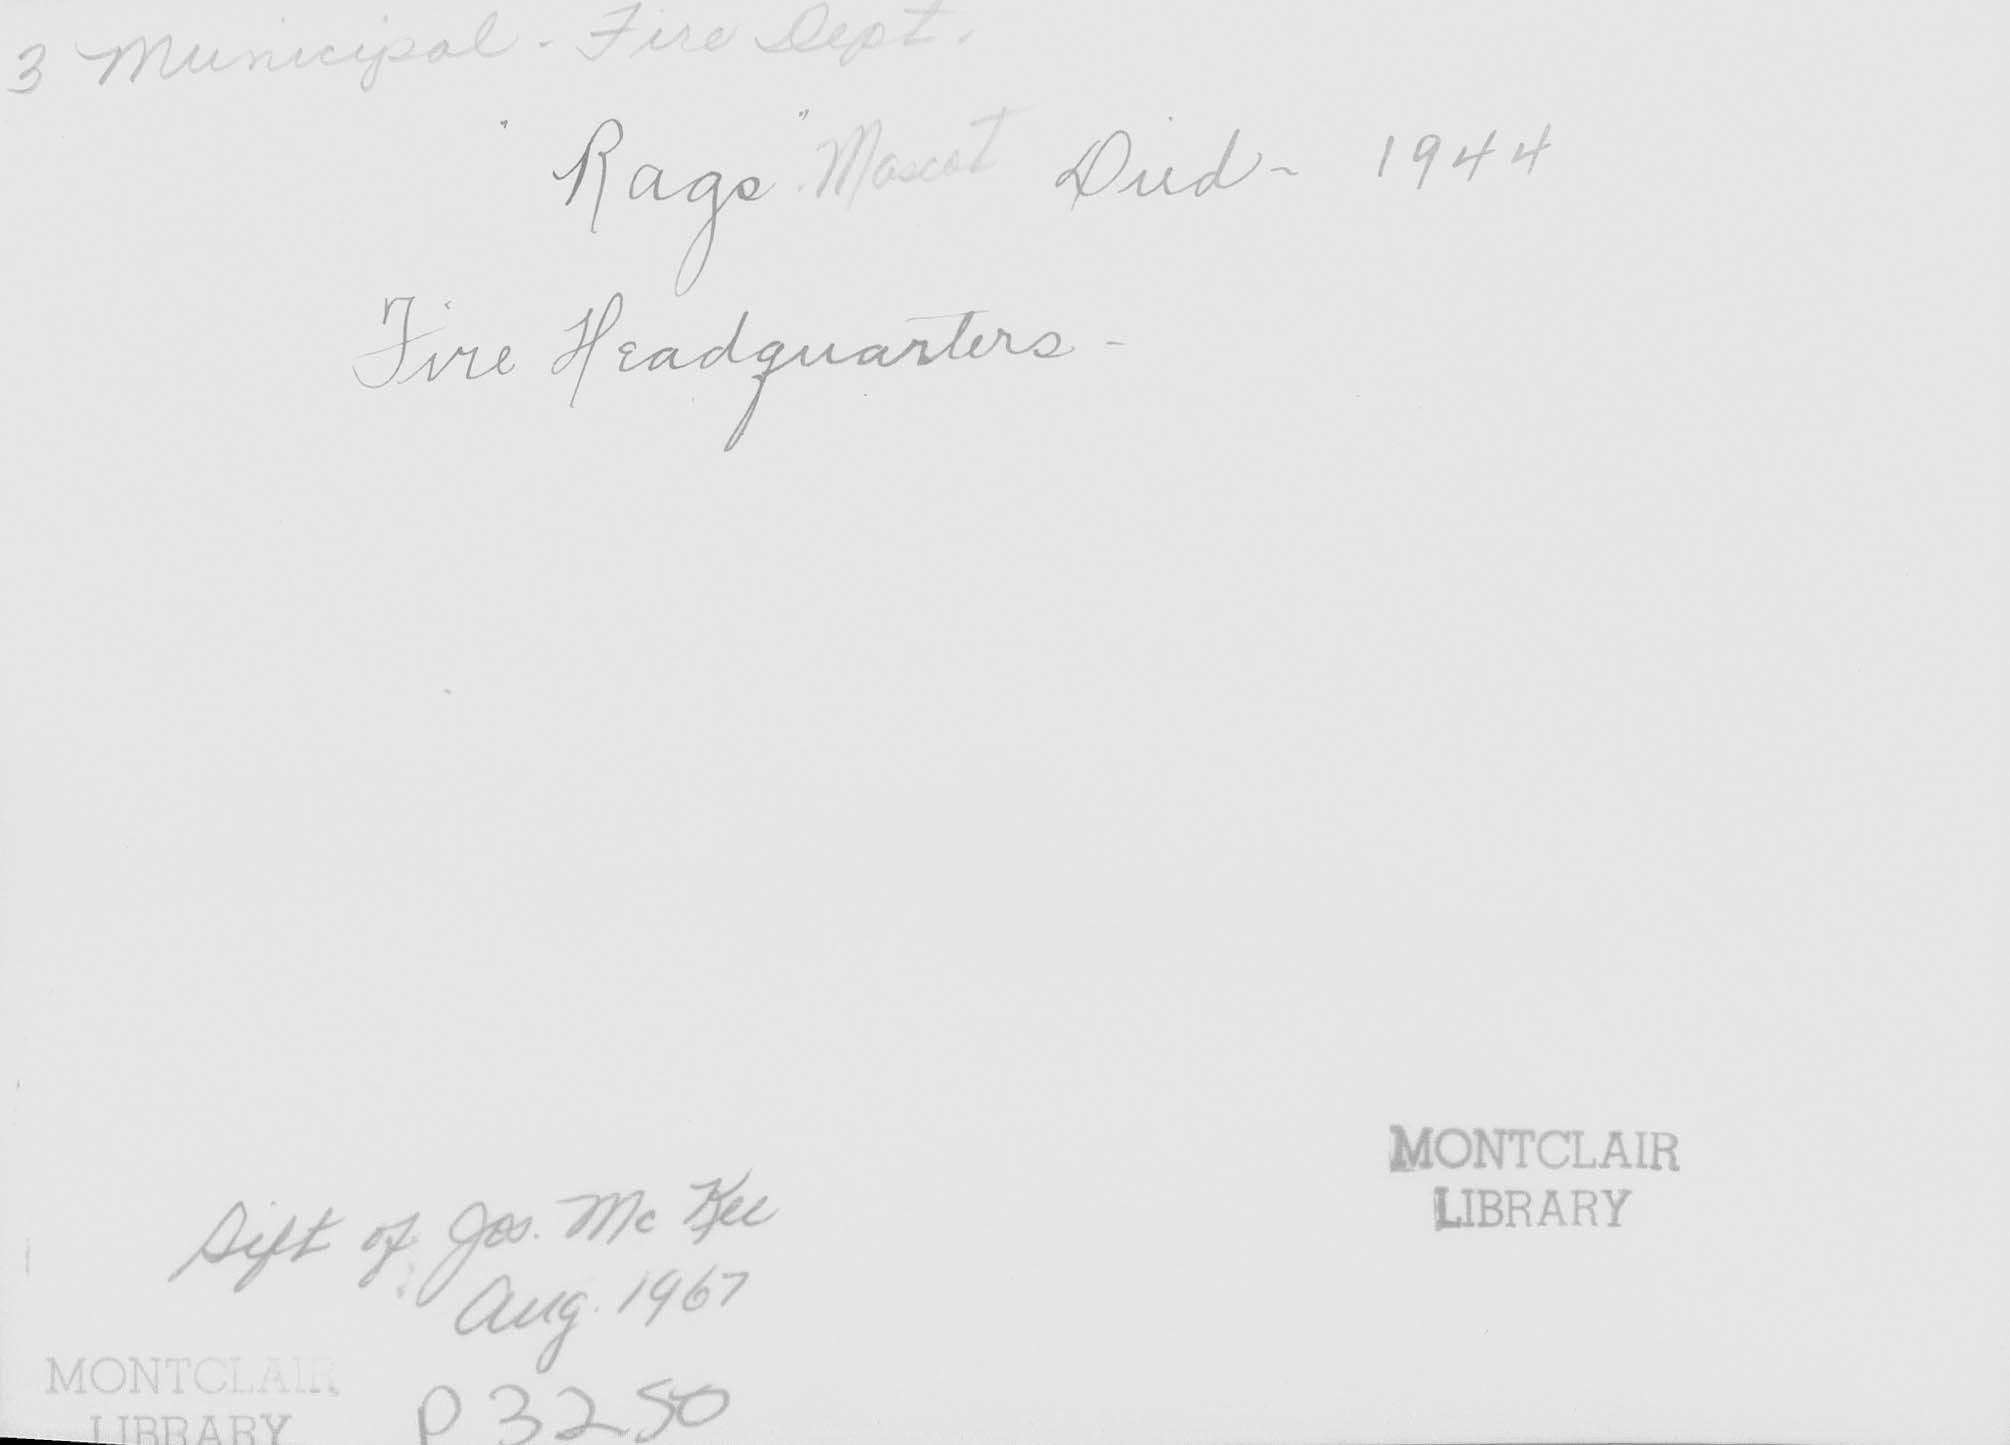 3 Municipal - Fire Dept.
"Rags" Mascot Died - 1944
Fire Headquarters -
Gift of Jos. McKee
Aug. 1967
MONTCLAIR
LIBRARY
MONTCLAIR
LIBRARY
P3250